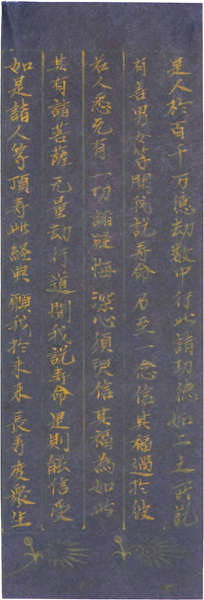 是人於百千万億劫數中行此諸功德如上之所說
有善男女等聞我說壽命乃至一念信其福過於彼
若人悉无有一切諸疑悔深心須臾信其福為如此
其有諸菩薩无量劫行道聞我說壽命是則能信受
如是諸人等頂壽此經典願我於未來長壽度衆生